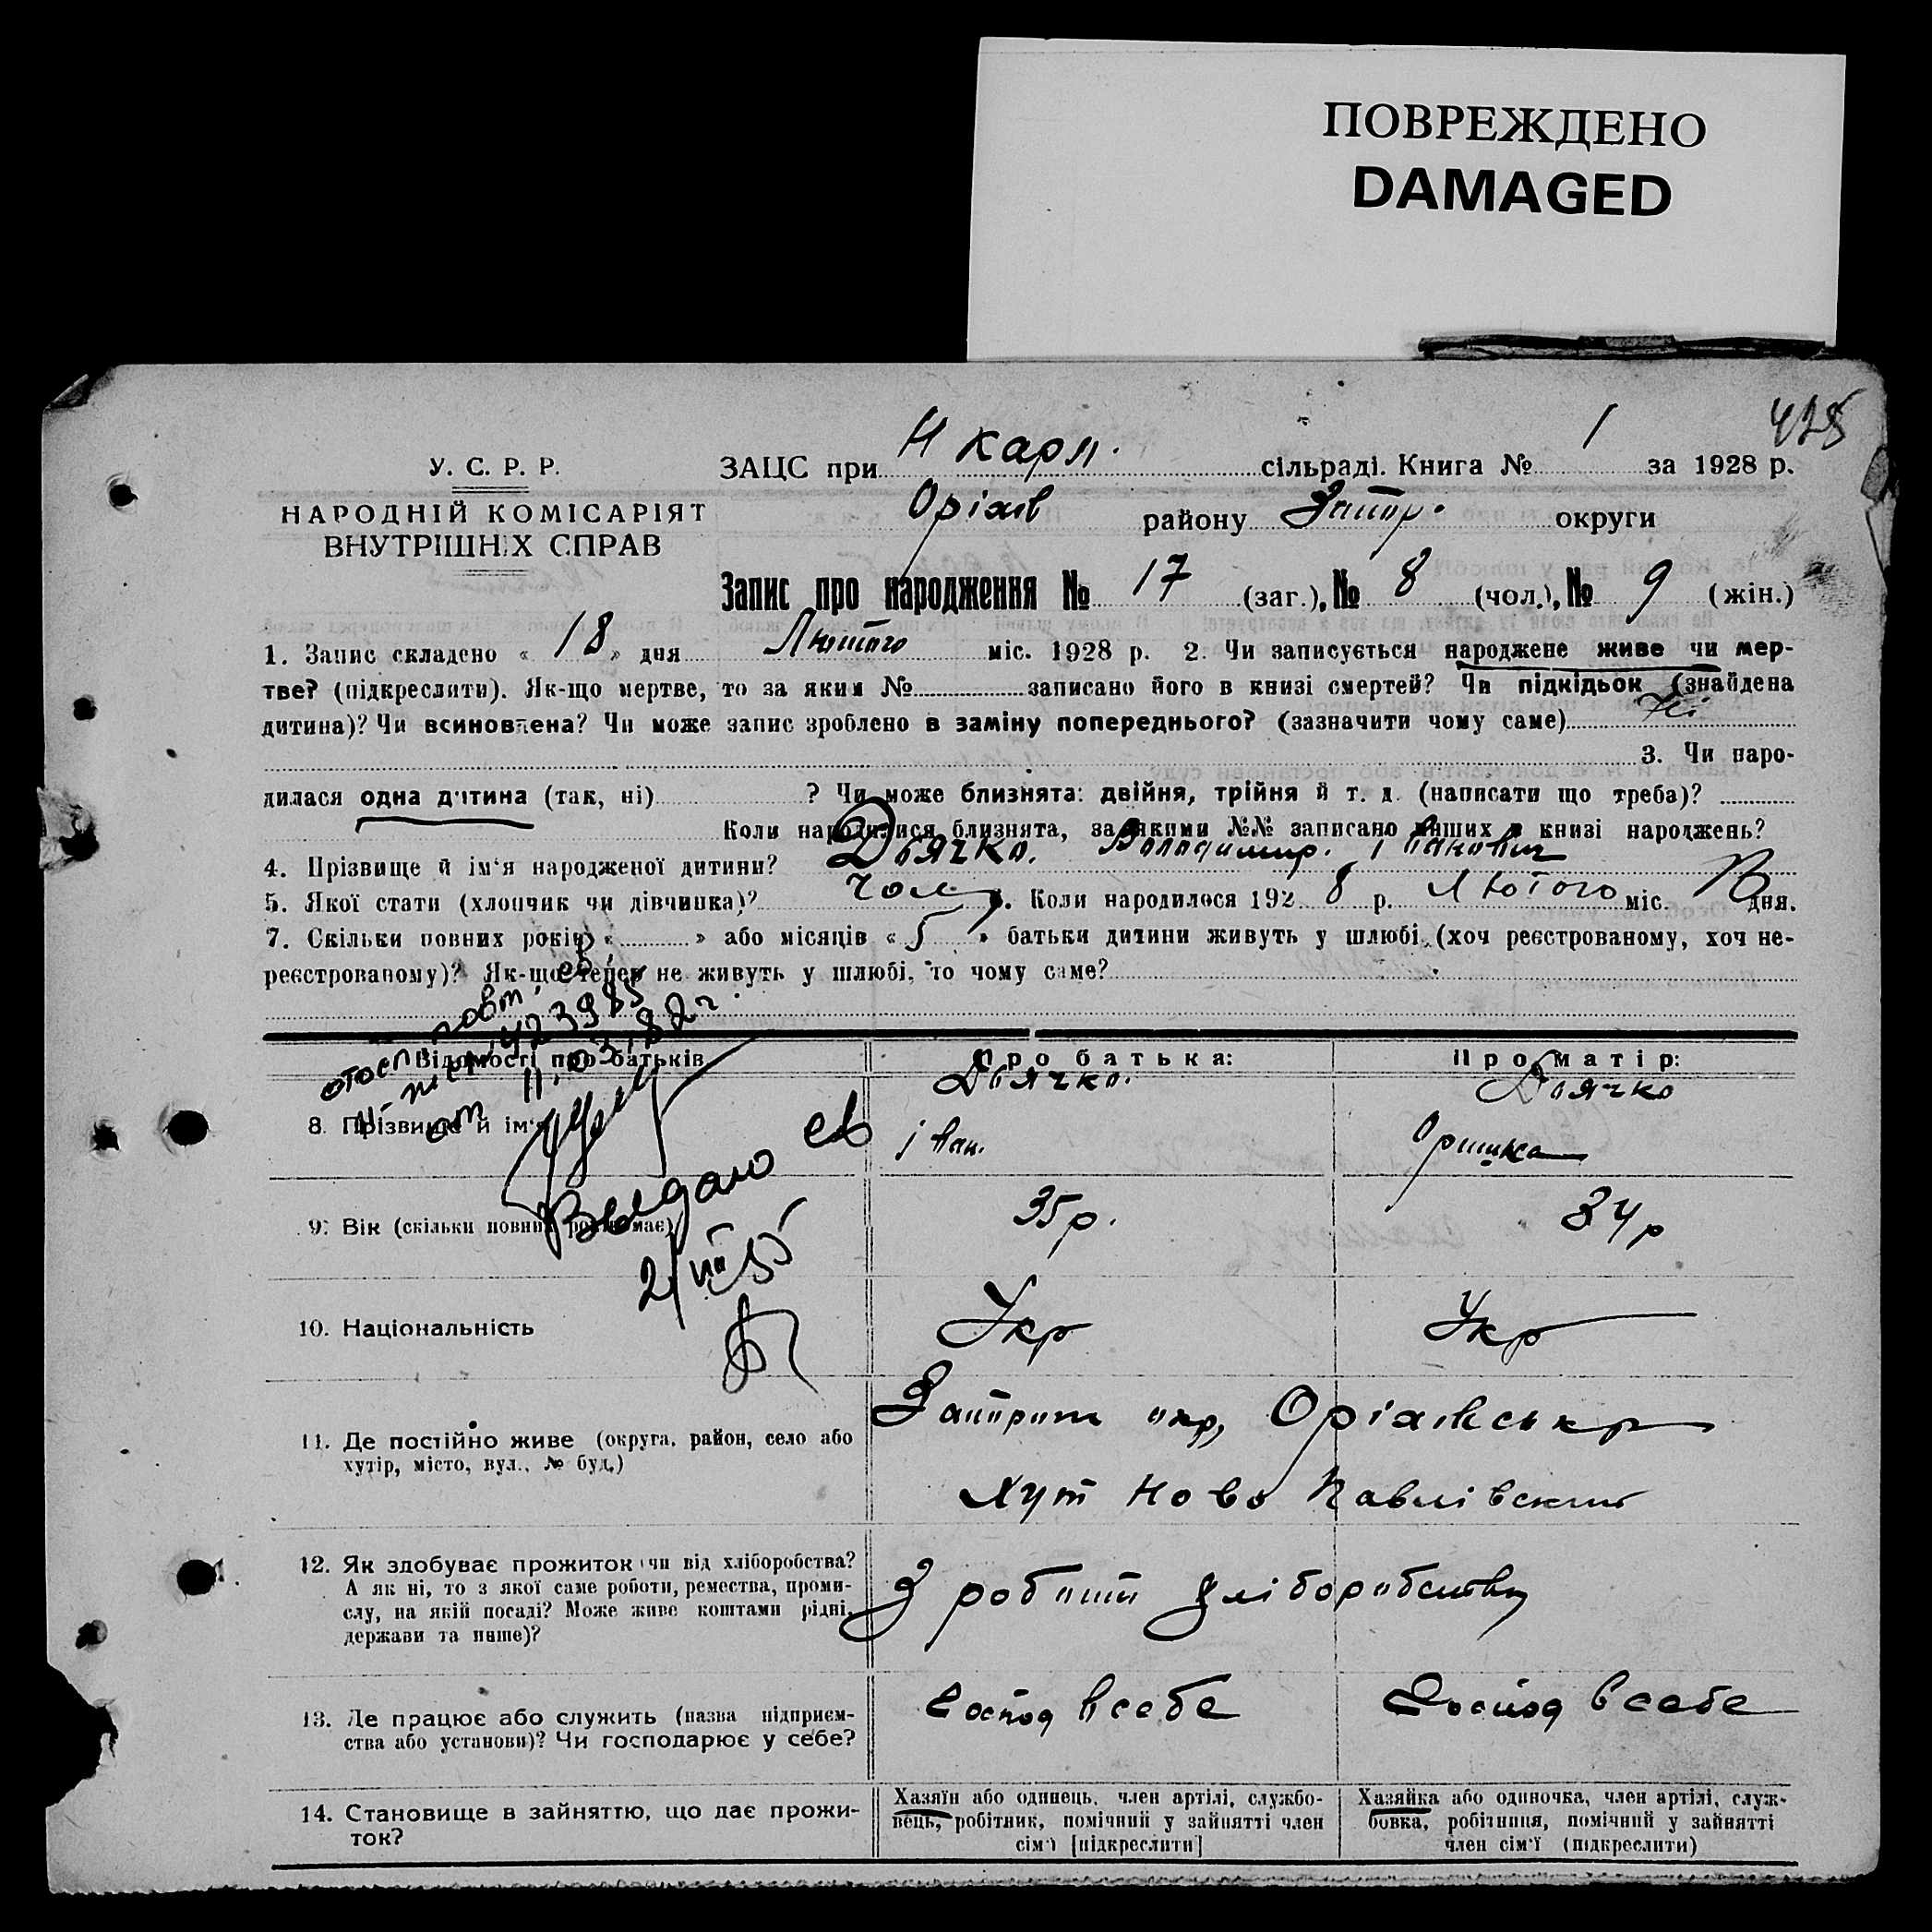 ПОВРЕЖДЕНО
DAMAGED
428
У. С. Р. Р.
НАРОДНІЙ КОМІСАРІЯТ
ВНУТРІШНІХ СПРАВ
ЗАЦС при Н карл. сільраді. Книга № 1 за 1928 р.
Оріхів району Запор. округи
Запис про народження № 17 (заг.), № 8 (чол.), № 9 (жін.)
1. Запис складено « 18 » дня Лютого міс. 1928 р. 2. Чи записується народжене живе чи мер-
тве? (підкреслити). Як-що мертве, то за яким № записано його в книзі смертей? Чи підкідьок (знайдена
дитина)? Чи всиновлена? Чи може запис зроблено в заміну попереднього? (зазначити чому саме) Ні
3. Чи наро-
дилася одна дитина (так, ні) ? Чи може близнята: двійня, трійня й т. д. (написати що треба)?
Коли народилися близнята, за якими №№ записано инших в книзі народжень?
4. Прізвище й ім'я народженої дитини? Дьячко. Володимир. Іванович
5. Якої стати (хлопчик чи дівчинка)? чол 6. Коли народилося 192 8 р. Лютого міс. дня.
7. Скільки повних років « » або місяців « 5 » батьки дитини живуть у шлюбі (хоч реєстрованому, хоч не-
реєстрованому)? Як-що тепер не живуть у шлюбі, то чому саме?
Відомості про батьків
Про батька:
Про матір:
8. Прізвище й ім'я
Дьячко.
Іван.
Дьячко
Оришка
Выдано св
9. Вік (скільки повних років має)
35 р.
34 р
10. Національність
Укр
Укр
11. Де постійно живе (округа, район, село або
хутір, місто, вул., № буд.)
окр, Оріхівськ р
Хут Ново Павлівский
12. Як здобуває прожиток чи від хліборобства?
А як ні, то з якої саме роботи, ремества, проми-
слу, на якій посаді? Може живе коштами рідні,
держави та инше)?
З роботи хліборобства
13. Де працює або служить (назва підприєм-
ства або установи)? Чи господарює у себе?
Господ всебе
Господ всебе
14. Становище в зайняттю, що дає прожи-
ток?
Хазяїн або одинець, член артілі, службо-
вець, робітник, помічний у зайнятті член
сім'ї [підкреслити]
Хазяйка або одиночка, член артілі, служ-
бовка, робітниця, помічний у зайнятті
член сім'ї (підкреслити)